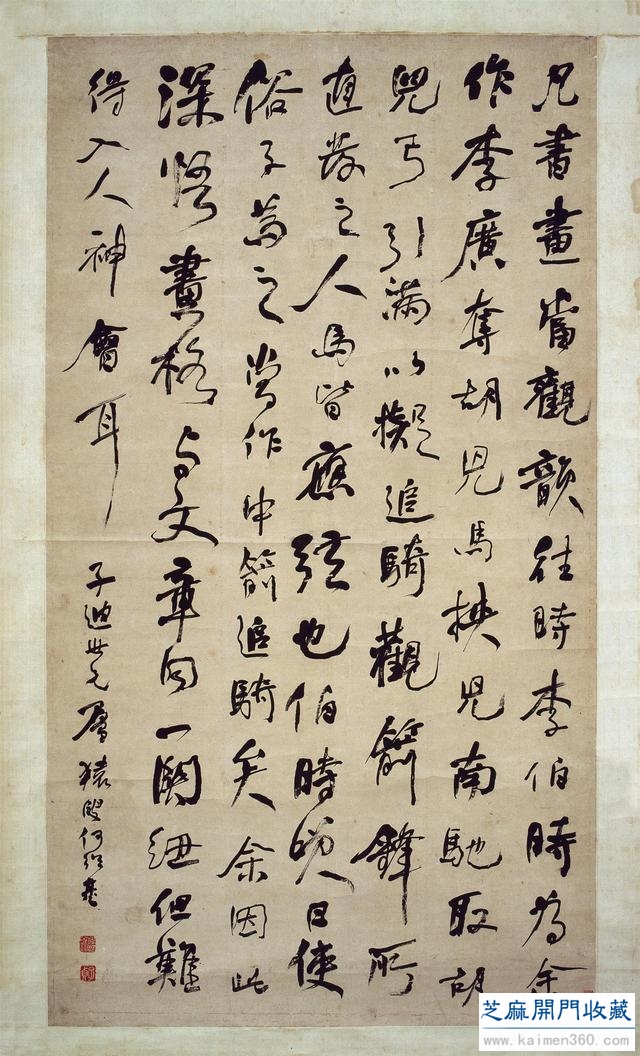 凡書畫當觀韻往時李伯時為余
作李廣奪胡兒馬挾兒南馳取胡
兒弓引滿以擬追騎觀箭鋒所
直發之人馬皆應弦也伯時笑曰使
俗子為之當作中箭追騎矣余因此
深悟畫格与文章同一關紐但難
得入人神會耳
子迪世兄屬猿叟何紹基
芝麻開門收藏
www.kaimen360.com